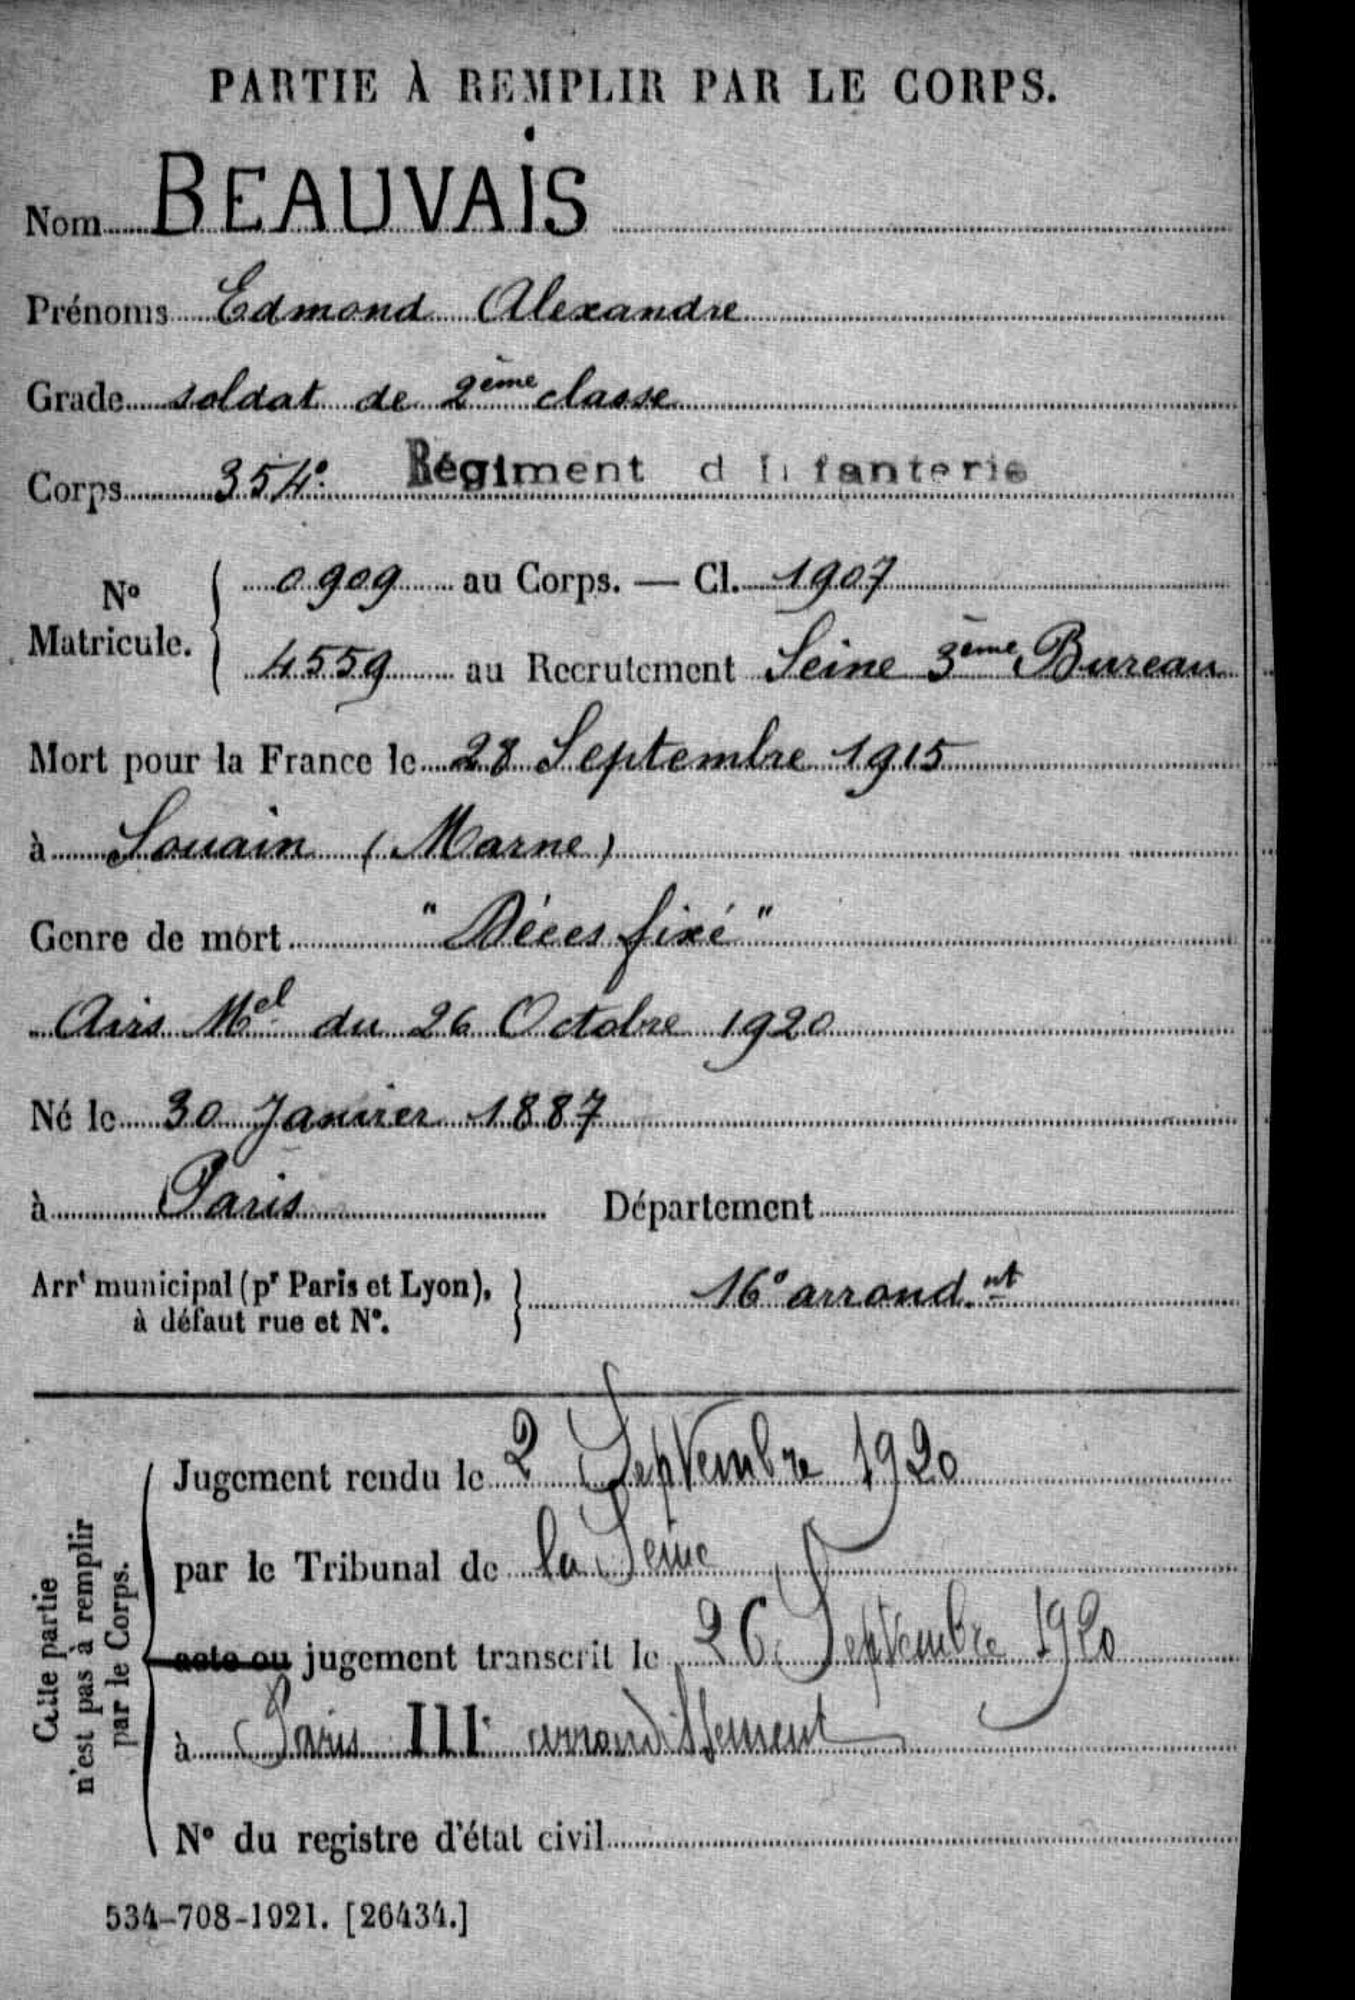 PARTIE À REMPLIR PAR LE CORPS.
Nom BEAUVAIS
Prénoms Edmond Alexandre
Grade soldat de 2ème classe
Corps 354e Régiment d Infanterie
No Matricule. 0909 au Corps. — Cl. 1907
4559 au Recrutement Seine 3ème Bureau
Mort pour la France le 28 Septembre 1915
à Souain (Marne)
Genre de mort "Décès fixé"
Avis Mel du 26 Octobre 1920
Né le 30 Janvier 1887
à Paris Département
Arrt municipal (pr Paris et Lyon), 16e arrond.nt
à défaut rue et No.
Jugement rendu le 2 Septembre 1920
par le Tribunal de la Seine
acte ou jugement transcrit le 26 Septembre 1920
à Paris IIIe arrondissement
No du registre d'état civil
Cette partie
n'est pas à remplir
par le Corps.
534-708-1921. [26434.]